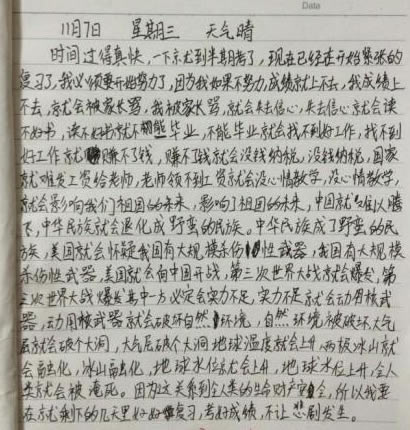 Date
11月7日 星期三 天气晴
时间过得真快,一下就到半期考了,现在已经在开始紧张的
复习了,我必须要开始努力了,因为我如果不努力,成绩就上不去,我成绩上
不去,就会被家长骂,我被家长骂,就会失去信心,失去信心就会读
不好书,读不好书就不能毕业,不能毕业就会找不到好工作,找不到
好工作就赚不了钱,赚不了钱就会没钱纳税,没钱纳税,国家
就难发工资给老师,老师领不到工资就会没心情教学,没心情教学,
就会影响我们祖国的未来,影响了祖国的未来,中国就难以腾
飞,中华民族就会退化成野蛮的民族。中华民族成了野蛮的民
族,美国就会怀疑我国有大规模杀伤性武器,我国有大规模
杀伤性武器,美国就会向中国开战,第三次世界大战就会爆发,第
三次世界大战爆发其中一方必定会实力不足,实力不足就会动用核武
器,动用核武器就会破坏自然环境,自然环境被破坏大气
层就会破个大洞,大气层破个大洞地球温度就会上升,两极冰山就
会融化,冰山融化,地球水位就会上升,地球水位上升,全人
类就会被淹死。因为这关系到全人类的生命财产安全,所以我要
在就剩下的几天里好好复习,考好成绩,不让悲剧发生。